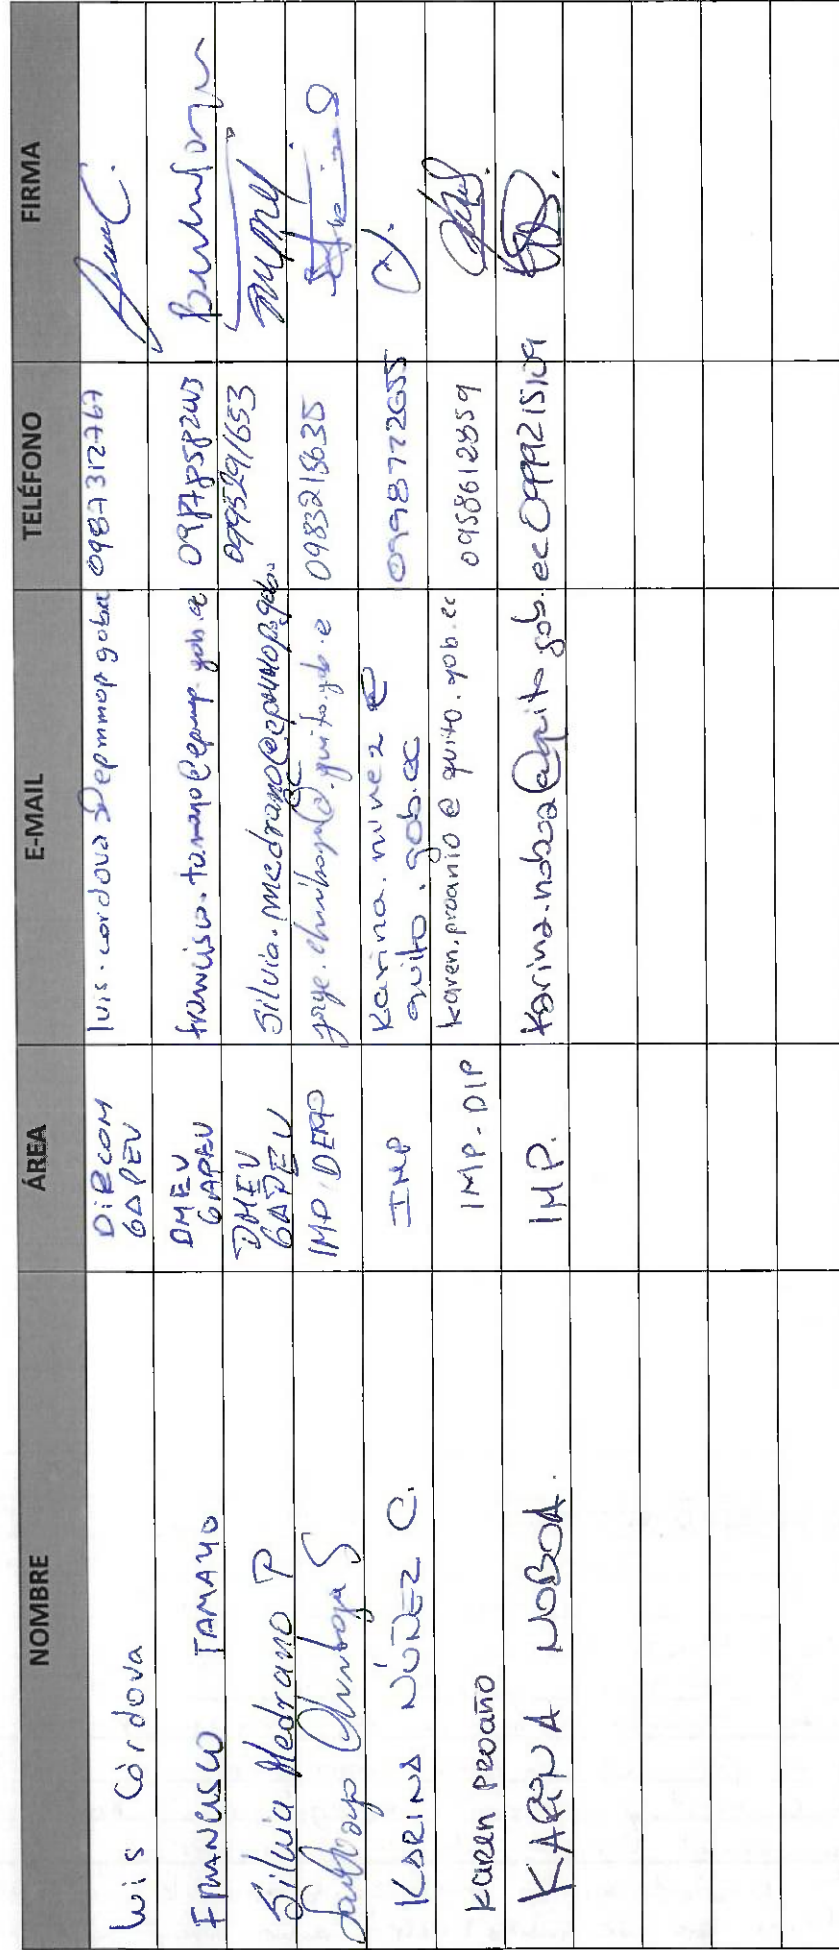 NOMBRE ÁREA E-MAIL TELÉFONO FIRMA
Luis Córdova DIRCOM GAPEV luis.cordova@epmmop.gob.ec 0987312767
FRANCISCO TAMAYO DMEV GAPEV francisco.tamayo@epmmop.gob.ec
Silvia Medrano P DMEV GAPEV silvia.medrano@epmmop.gob.ec 0995291653
Santiago Chiriboga S IMP DEMP jorge.chiriboga@quito.gob.e 0983215635
KARINA NÚÑEZ C. IMP karina.nunez@
quito.gob.ec 0998772655
Karen Proaño IMP-DIP karen.proanio@quito.gob.ec 0958612859
KARINA NOBOA. IMP. karina.noboa@quito.gob.ec 0999215109